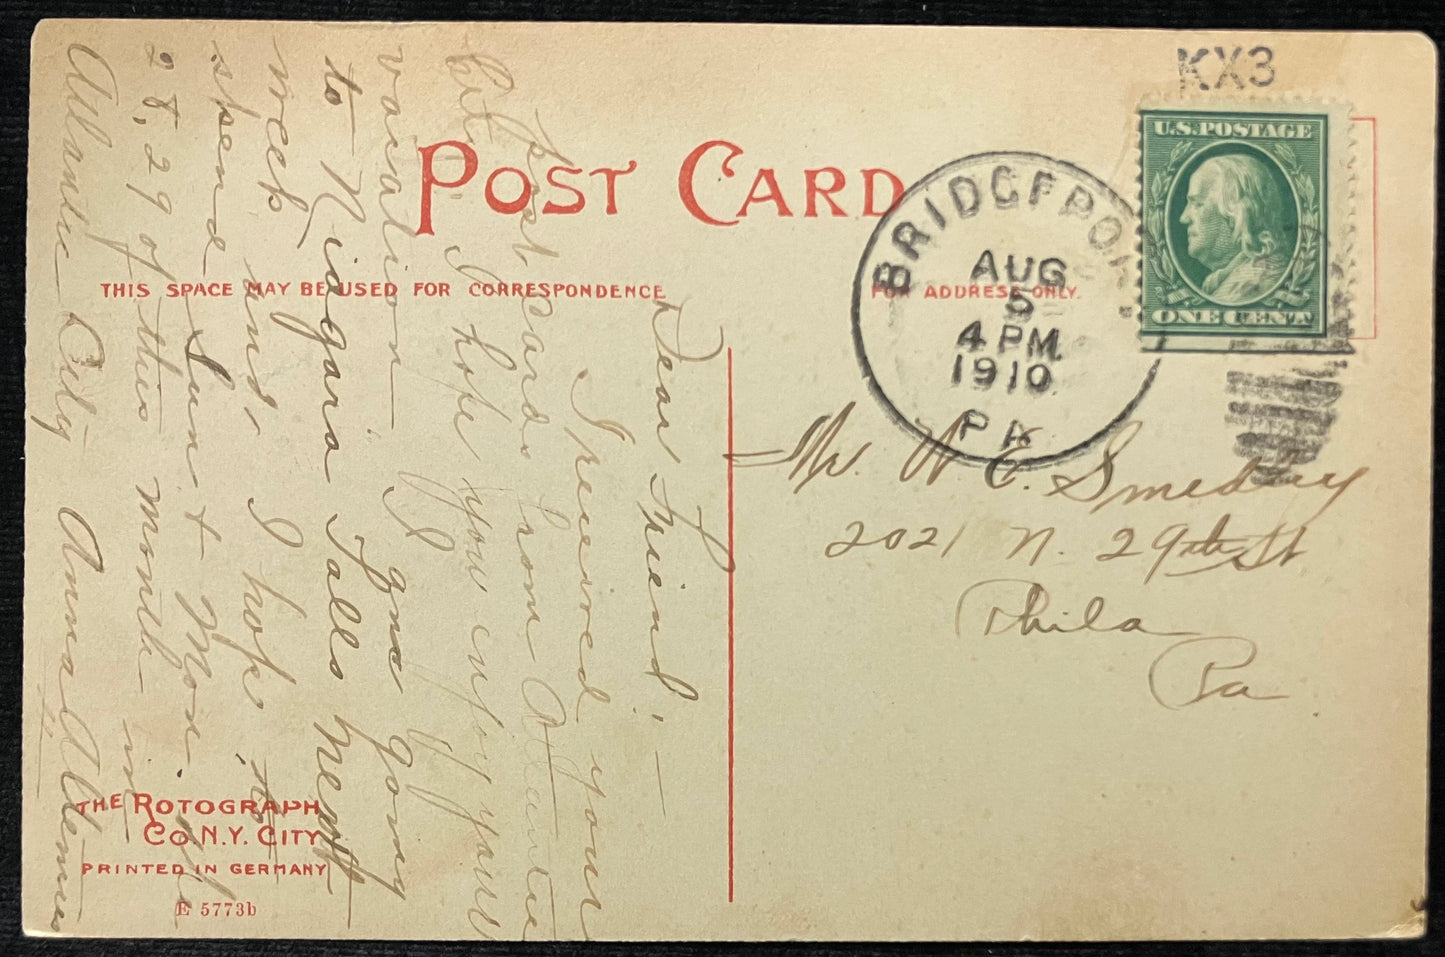 KX3
U.S. POSTAGE
ONE CENT
POST CARD
THIS SPACE MAY BE USED FOR CORRESPONDENCE
FOR ADDRESS ONLY.
BRIDGEPORT
AUG
5
4 PM
1910
PA
Mr. W E. Smedley
2021 N. 29th St
Phila
Pa
Dear Friend, —
I received your
post cards from Atlantic
City. I hope you enjoy your
vacation. I gna going
to Niagara Falls next
week and I hope to
spend Sun & Mon. the
28, 29 of this month in
Atlantic City Anna
THE ROTOGRAPH
CO. N.Y. CITY
PRINTED IN GERMANY
E 5773b